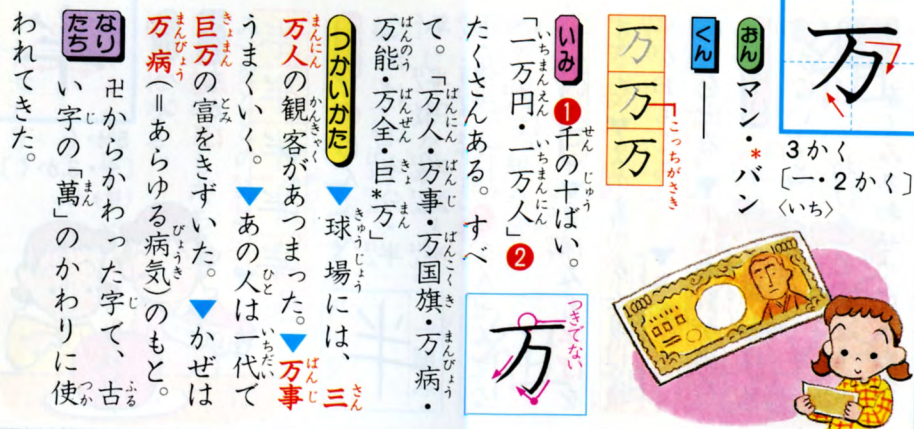 万
3かく
〔一・2かく〕
〈いち〉
おん マン・*バン
くん ―
万 万 万
こっちがさき
いみ ❶千の十ばい。
「一万円・一万人」❷
たくさんある。すべ
て。「万人・万事・万国旗・万病・
万能・万全・巨*万」
万
つきでない
つかいかた ▼球場には、三
万人の観客があつまった。▼万事
うまくいく。▼あの人は一代で
巨万の富をきずいた。▼かぜは
万病(=あらゆる病気)のもと。
なりたち 卍からかわった字で、古
い字の「萬」のかわりに使
われてきた。
10000
10000